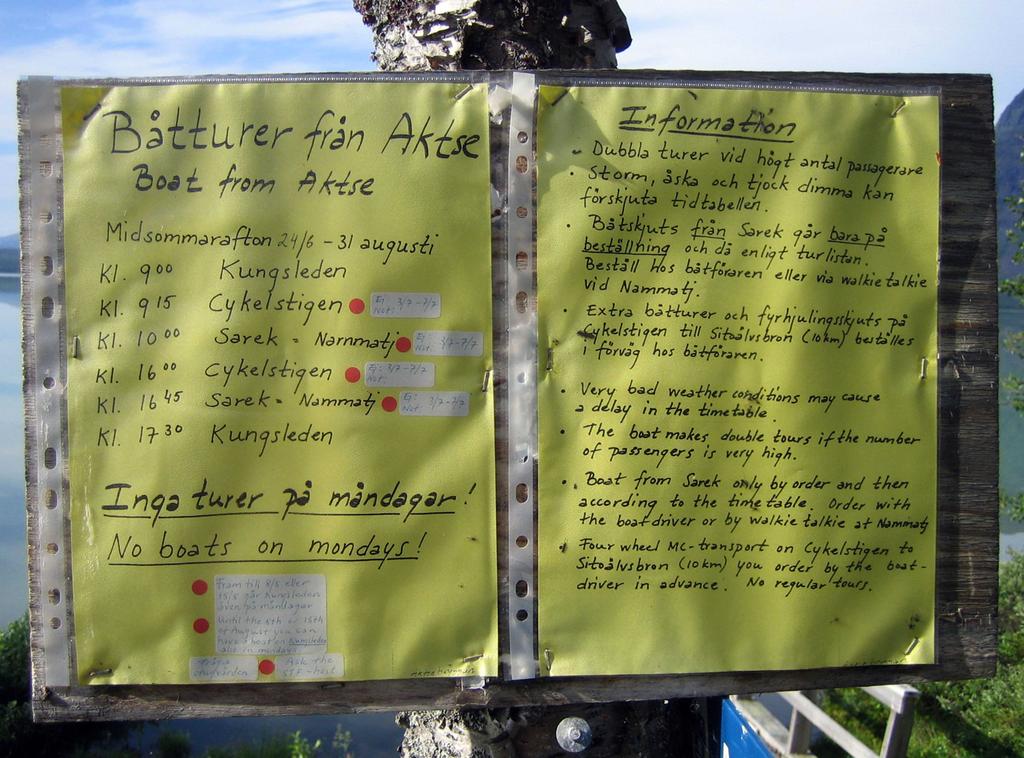 Båtturer från Aktse
Boat from Aktse
Midsommarafton 24/6 - 31 augusti
Kl. 9 00 Kungsleden
Kl. 9 15 Cykelstigen Ej: 3/7-7/7 Not:
Kl. 10 00 Sarek - Nammatj Ej: 3/7-7/7 Not:
Kl. 16 00 Cykelstigen Ej: 3/7-7/7 Not:
Kl. 16 45 Sarek - Nammatj Ej: 3/7-7/7 Not:
Kl. 17 30 Kungsleden
Inga turer på måndagar!
No boats on mondays!
Fram till 8/8 eller
15/8 går Kungsleden
även på måndagar
Until the 8th or 15th
of August you can
have a boat on Kungsleden
also in mondays
Fråga Ask the
stugvärden STF-host
Information
• Dubbla turer vid högt antal passagerare
• Storm, åska och tjock dimma kan
förskjuta tidtabellen.
• Båtskjuts från Sarek går bara på
beställning och då enligt turlistan.
Beställ hos båtföraren eller via walkie talkie
vid Nammatj.
• Extra båtturer och fyrhjulingsskjuts på
Cykelstigen till Sitoälvsbron (10km) beställes
i förväg hos båtföraren.
• Very bad weather conditions may cause
a delay in the timetable
• The boat makes double tours if the number
of passengers is very high.
• Boat from Sarek only by order and then
according to the timetable. Order with
the boatdriver or by walkie talkie at Nammatj
• Four wheel MC-transport on Cykelstigen to
Sitoälvsbron (10km) you order by the boat-
driver in advance. No regular tours.